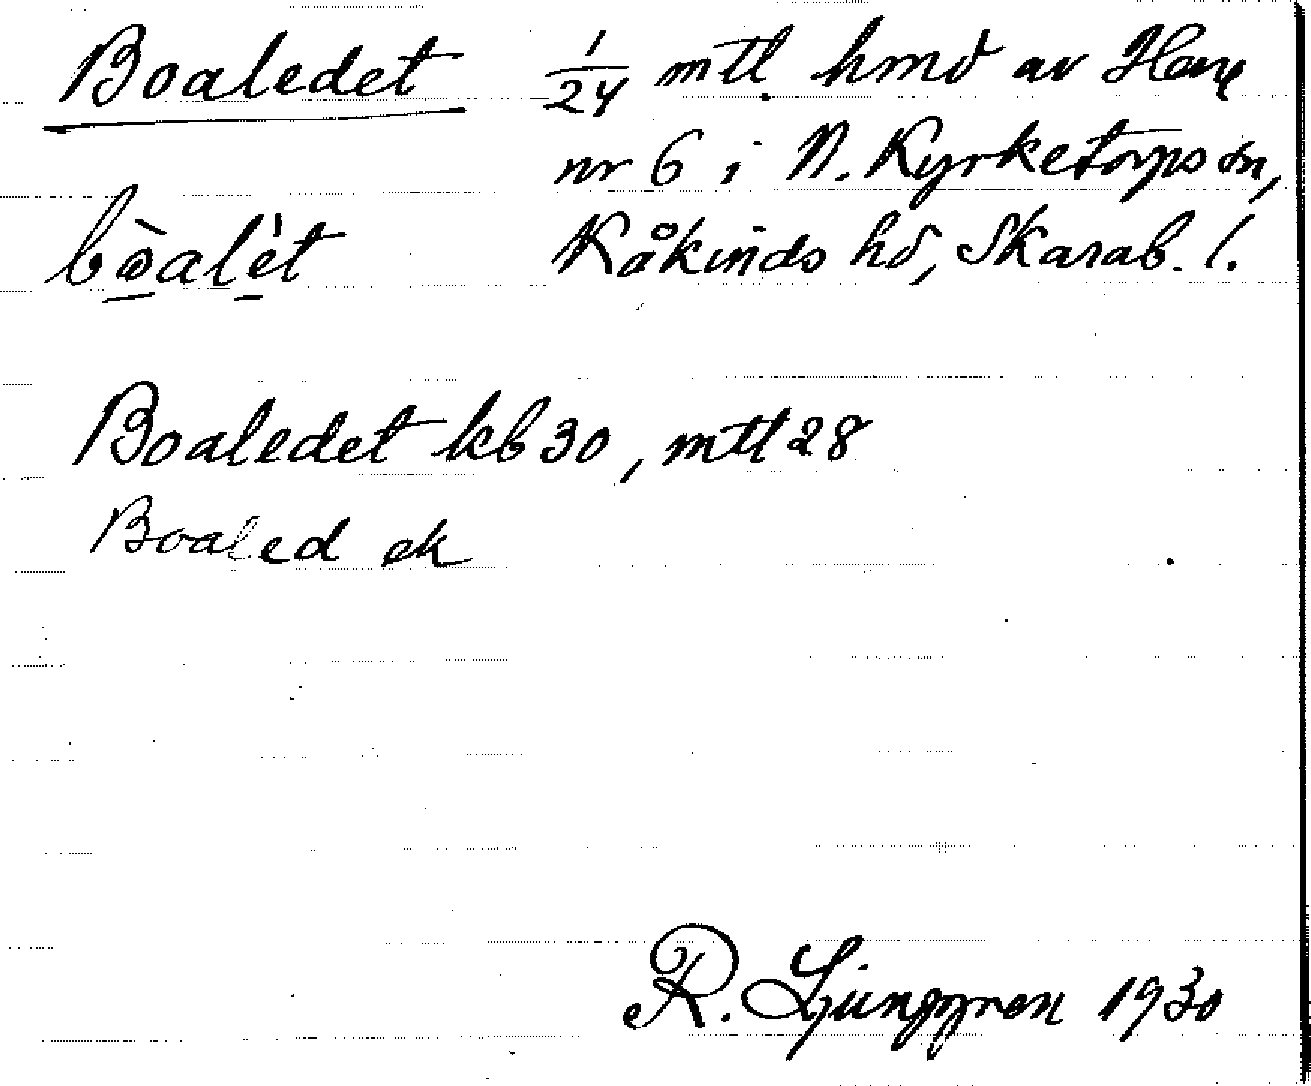 Boaledet 1/24 mtl hmd av Hene
nr 6 i N. Kyrketorps sn,
bòalét Kåkinds hd, Skarab. l.
Boaledet kb 30, mtl 28
Boaled ek
R. Ljunggren 1930